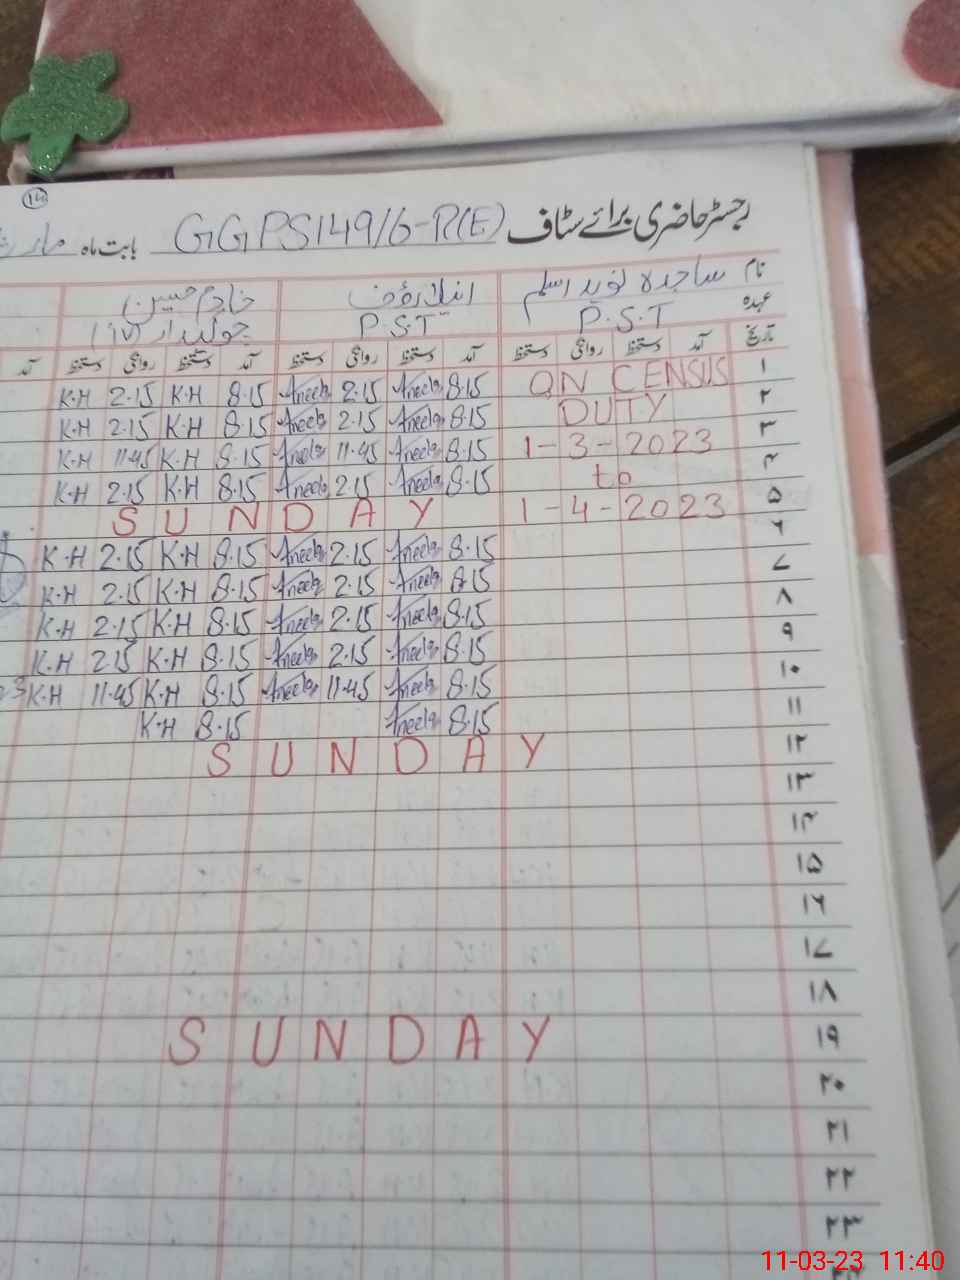 14
رجسٹر حاضری برائے سٹاف GGPS 149/6-R(E) بابت ماہ
نام ساجدہ نوید اسلم خادم حسین
عہدہ P.S.T P.S.T
تاریخ آمد دستخط روانگی دستخط آمد دستخط روانگی دستخط آمد دستخط روانگی دستخط آمد
۱ ON CENSUS 8.15 Aneela 2.15 Aneela 8.15 K.H 2.15 K.H
۲ DUTY 8.15 Aneela 2.15 Aneela 8.15 K.H 2.15 K.H
۳ 1-3-2023 8.15 Aneela 11.45 Aneela 8.15 K.H 11.45 K.H
۴ to 8.15 Aneela 2.15 Aneela 8.15 K.H 2.15 K.H
۵ 1-4-2023 SUNDAY
۶ 8.15 Aneela 2.15 Aneela 8.15 K.H 2.15 K.H
۷ 8.15 Aneela 2.15 Aneela 8.15 K.H 2.15 K.H
۸ 8.15 Aneela 2.15 Aneela 8.15 K.H 2.15 K.H
۹ 8.15 Aneela 2.15 Aneela 8.15 K.H 2.15 K.H
۱۰ 8.15 Aneela 11.45 Aneela 8.15 K.H 11.45 K.H
۱۱ 8.15 Aneela 8.15 K.H
۱۲ SUNDAY
۱۳
۱۴
۱۵
۱۶
۱۷
۱۸
۱۹ SUNDAY
۲۰
۲۱
۲۲
۲۳
11-03-23 11:40